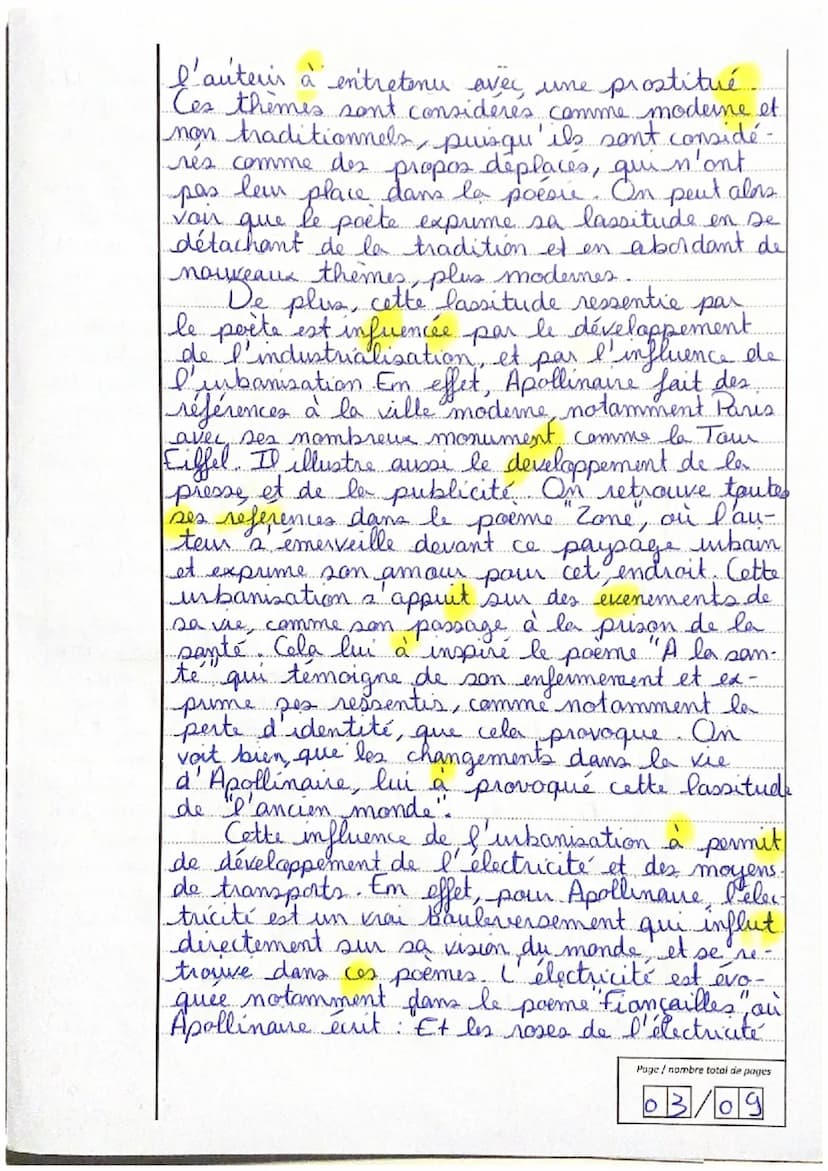 l'auteur à entretenu avec une prostitué.
Ces thèmes sont considérés comme moderne et
non traditionnels, puisqu'ils sont considé-
rés comme des propos déplacés, qui n'ont
pas leur place dans la poésie. On peut alors
voir que le poète exprime sa lassitude en se
détachant de la tradition et en abordant de
nouveaux thèmes, plus modernes.
De plus, cette lassitude ressentie par
le poète est infuencée par le développement
de l'industrialisation, et par l'influence de
l'urbanisation. En effet, Apollinaire fait des
références à la ville moderne, notamment Paris
avec ses nombreux monument comme la Tour
Eiffel. Il illustre aussi le developpement de la
presse et de la publicité. On retrouve toutes
ses references dans le poème "Zone", où l'au-
teur s'émerveille devant ce paysage urbain
et exprime son amour pour cet endroit. Cette
urbanisation s'appuit sur des évenements de
sa vie, comme son passage à la prison de la
santé. Cela lui à inspiré le poème "A la san-
té" qui témoigne de son enfermement et ex-
prime ses ressentis, comme notamment la
perte d'identité, que cela provoque. On
voit bien, que les changements dans la vie
d'Apollinaire, lui à provoqué cette lassitude
de "l'ancien monde".
Cette influence de l'urbanisation à permit
de développement de l'électricité et des moyens
de transports. En effet, pour Apollinaire, l'élec-
tricité est un vrai bouleversement qui influt
directement sur sa vision du monde, et se re-
trouve dans ces poèmes. L'électricité est évo-
quée notamment dans le poème "Fiançailles", où
Apollinaire écrit : Et les roses de l'électricité
Page / nombre total de pages
03/09